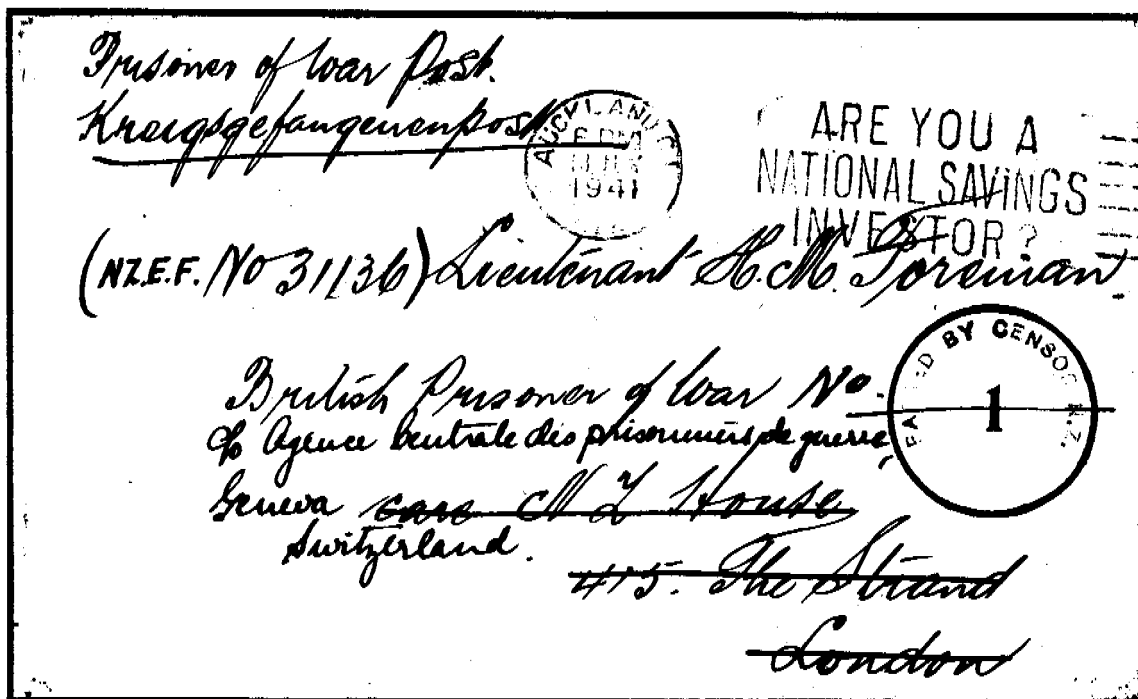 Prisoner of War Post.
Kreigsgefangenenpost
AUCKLAND
6 PM
1941
ARE YOU A
NATIONAL SAVINGS
INVESTOR?
(N.Z.E.F. No 31136) Lieutenant H.M. Foreman
British Prisoner of War No.
c/o Agence Centrale des prisonniers de guerre,
Geneva care N Z House
Switzerland.
415. The Strand
London
PASSED BY CENSOR N.Z.
1